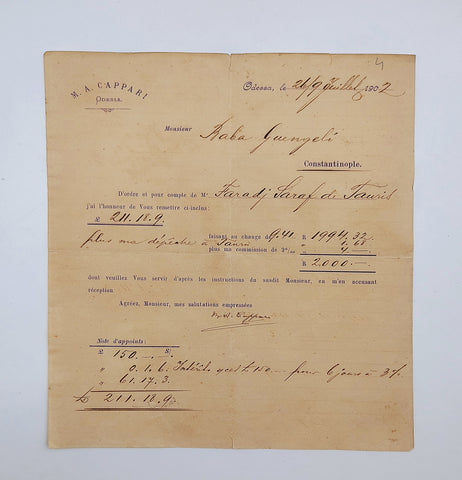 4
M. A. CAPPARI
ODESSA.
Odessa, le 26/9 Juillet 1902
Monsieur
Baba Guengeli
Constantinople.
D'ordre et pour compte de Mr. Faradj Saraf de Tauris
j'ai l'honneur de Vous remettre ci-inclus:
£ 211.18.9. faisant au change de 9.40. R 1994.32
plus ma dépêche à Tauris " 1.68
plus ma commission de 2º/00 " 4.—
R 2000.—
dont veuillez Vous servir d'après les instructions du susdit Monsieur, en m'en accusant
réception
Agréez, Monsieur, mes salutations empressées
M. A. Cappari
Note d'appoints:
£ 150.—.—
" 0.1.6. Intérêts £ 150.— pour 6 jours à 3%
" 61.17.3.
£ 211.18.9.